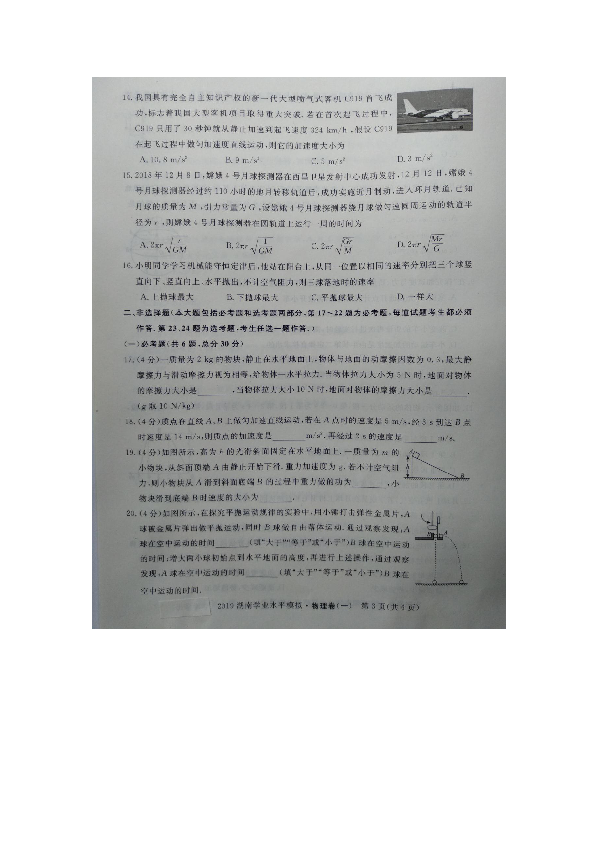 14. 我国具有完全自主知识产权的新一代大型喷气式客机 C919 首飞成
功,标志着我国大型客机项目取得重大突破. 若在首次起飞过程中,
C919 只用了 30 秒钟就从静止加速到起飞速度 324 km/h,假设 C919
在起飞过程中做匀加速度直线运动,则它的加速度大小为
A. 10.8 m/s² B. 9 m/s² C. 5 m/s² D. 3 m/s²
15. 2018 年 12 月 8 日,嫦娥 4 号月球探测器在西昌卫星发射中心成功发射,12 月 12 日,嫦娥 4
号月球探测器经过约 110 小时的地月转移轨道后,成功实施近月制动,进入环月轨道. 已知
月球的质量为 M,引力常量为 G,设嫦娥 4 号月球探测器绕月球做匀速圆周运动的轨道半
径为 r,则嫦娥 4 号月球探测器在圆轨道上运行一周的时间为
A. 2πr√(r/GM) B. 2πr√(1/GM) C. 2πr√(Gr/M) D. 2πr√(Mr/G)
16. 小明同学学习机械能守恒定律后,他站在阳台上,从同一位置以相同的速率分别把三个球竖
直向下、竖直向上、水平抛出,不计空气阻力,则三球落地时的速率
A. 上抛球最大 B. 下抛球最大 C. 平抛球最大 D. 一样大
二、非选择题(本大题包括必考题和选考题两部分. 第 17～22 题为必考题,每道试题考生都必须
作答. 第 23、24 题为选考题,考生任选一题作答.)
(一)必考题(共 6 题,总分 30 分)
17. (4 分)一质量为 2 kg 的物块,静止在水平地面上,物体与地面的动摩擦因数为 0.3,最大静
摩擦力与滑动摩擦力视为相等,给物体一水平拉力. 当物体拉力大小为 5 N 时,地面对物体
的摩擦力大小是 ,当物体拉力大小 10 N 时,地面对物体的摩擦力大小是 .
(g 取 10 N/kg)
18. (4 分)质点在直线 A、B 上做匀加速直线运动,若在 A 点时的速度是 5 m/s,经 3 s 到达 B 点
时速度是 14 m/s,则质点的加速度是 m/s²,再经过 2 s 的速度是 m/s.
19. (4 分)如图所示,高为 h 的光滑斜面固定在水平地面上. 一质量为 m 的
小物块,从斜面顶端 A 由静止开始下滑. 重力加速度为 g. 若不计空气阻
力,则小物块从 A 滑到斜面底端 B 的过程中重力做的功为 ,小
物块滑到底端 B 时速度的大小为 .
20. (4 分)如图所示,在探究平抛运动规律的实验中,用小锤打击弹性金属片,A
球被金属片弹出做平抛运动,同时 B 球做自由落体运动. 通过观察发现:A
球在空中运动的时间 (填“大于”“等于”或“小于”)B 球在空中运动
的时间;增大两小球初始点到水平地面的高度,再进行上述操作,通过观察
发现,A 球在空中运动的时间 (填“大于”“等于”或“小于”)B 球在
空中运动的时间.
2019 湖南学业水平模拟·物理卷(一) 第 3 页(共 4 页)